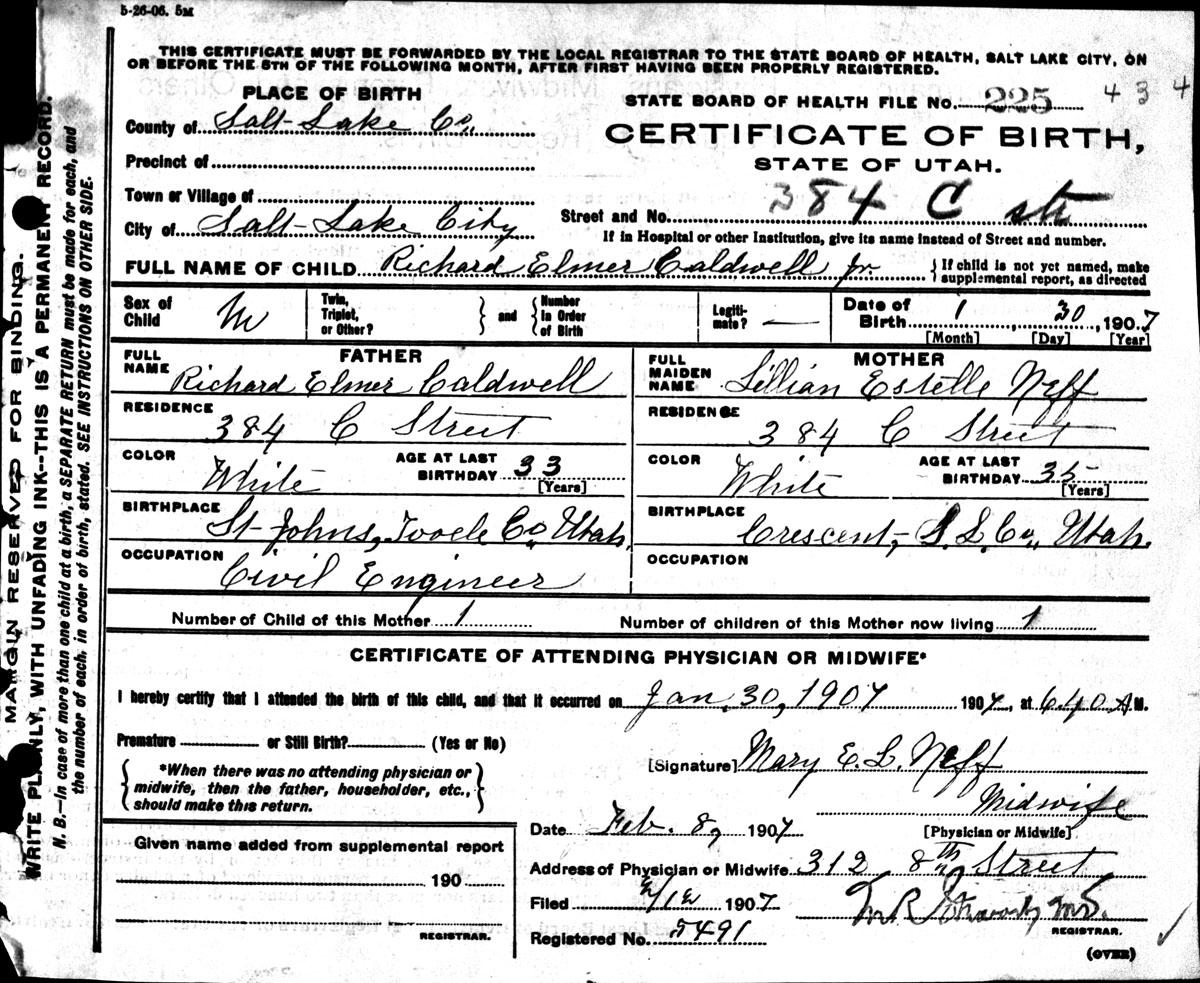 5-26-06. 5M
THIS CERTIFICATE MUST BE FORWARDED BY THE LOCAL REGISTRAR TO THE STATE BOARD OF HEALTH, SALT LAKE CITY, ON
OR BEFORE THE 5TH OF THE FOLLOWING MONTH, AFTER FIRST HAVING BEEN PROPERLY REGISTERED.
PLACE OF BIRTH
STATE BOARD OF HEALTH FILE No. 225 434
County of Salt-Lake Co.
CERTIFICATE OF BIRTH,
STATE OF UTAH.
Precinct of
Town or Village of
City of Salt-Lake City
Street and No. 384 C str
If in Hospital or other Institution, give its name instead of Street and number.
FULL NAME OF CHILD Richard Elmer Caldwell Jr. { If child is not yet named, make
supplemental report, as directed
Sex of Child M
Twin, Triplet, or Other? } and { Number in Order of Birth
Legiti-mate? —
Date of Birth 1, 30, 1907
[Month] [Day] [Year]
FATHER
FULL NAME Richard Elmer Caldwell
RESIDENCE 384 C Street
COLOR White AGE AT LAST BIRTHDAY 33 [Years]
BIRTHPLACE St-Johns, Tooele Co. Utah.
OCCUPATION Civil Engineer
MOTHER
FULL MAIDEN NAME Lillian Estelle Neff
RESIDENCE 384 C Street
COLOR White AGE AT LAST BIRTHDAY 35 [Years]
BIRTHPLACE Crescent, S.L.Co., Utah.
OCCUPATION
Number of Child of this Mother 1 Number of children of this Mother now living 1
CERTIFICATE OF ATTENDING PHYSICIAN OR MIDWIFE*
I hereby certify that I attended the birth of this child, and that it occurred on Jan. 30, 1907 1907, at 6.40 A.M.
Premature or Still Birth? (Yes or No)
{ *When there was no attending physician or
midwife, then the father, householder, etc.,
should make this return. }
[Signature] Mary E. L. Neff
Midwife
[Physician or Midwife]
Date Feb. 8, 1907
Address of Physician or Midwife 312 8th Street
Filed 2/12 1907
M.D.
REGISTRAR.
Registered No. 5491
(OVER)
Given name added from supplemental report
190
REGISTRAR.
MARGIN RESERVED FOR BINDING.
WRITE PLAINLY, WITH UNFADING INK--THIS IS A PERMANENT RECORD.
N. B.—In case of more than one child at a birth, a SEPARATE RETURN must be made for each, and
the number of each, in order of birth, stated. SEE INSTRUCTIONS ON OTHER SIDE.